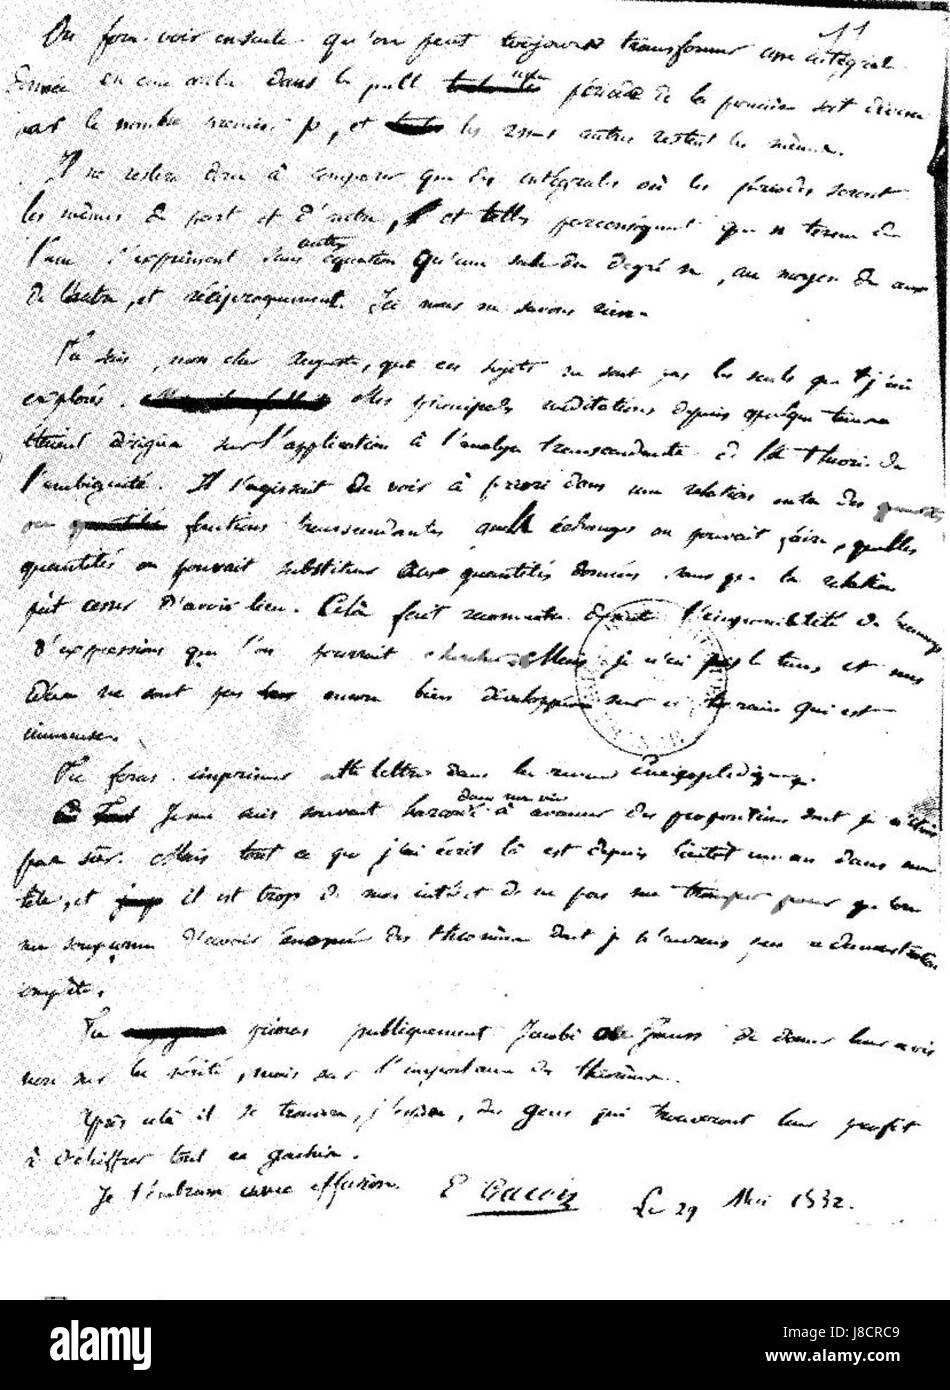 11
On fera voir ensuite qu'on peut toujours transformer une intégrale
donnée en une autre dans laquelle une période de la première soit divisée
par le nombre premier p, et les autres restent les mêmes.
Il ne restera donc à comparer que des intégrales où les périodes seront
les mêmes de part et d'autre, et telles parconséquent que n termes de
l'une s'expriment sans autre équation qu'une seule du degré n, au moyen de ceux
de l'autre, et réciproquement. Ici nous ne savons rien.
Tu sais, mon cher Auguste, que ces sujets ne sont pas les seuls que j'aie
explorés. Mes principales méditations depuis quelque temps
étaient dirigées sur l'application à l'analyse transcendante de la théorie de
l'ambiguité. Il s'agissait de voir à priori dans une relation entre des quantités
ou fonctions transcendantes quels échanges on pouvait faire, quelles
quantités on pouvait substituer aux quantités données sans que la relation
put cesser d'avoir lieu. Cela fait reconnaitre l'impossibilité de beaucoup
d'expressions que l'on pourrait chercher. Mais je n'ai pas le tems et mes
idées ne sont pas encore bien développées sur ce terrain qui est
immense.
Tu feras imprimer cette lettre dans la revue Encyclopédique.
Je me suis souvent hasardé dans ma vie à avancer des propositions dont je n'étais
pas sûr. Mais tout ce que j'ai écrit là est depuis bientôt un an dans ma
tête, et il est trop de mon intérêt de ne pas me tromper pour que l'on
me soupçonne d'avoir énoncé des théorèmes dont je n'aurais pas la démonstration
complète.
Tu prieras publiquement Jacobi ou Gauss de donner leur avis
non sur la vérité, mais sur l'importance des théorèmes.
Après cela il se trouvera, j'espère, des gens qui trouveront leur profit
à déchiffrer tout ce gachis.
Je t'embrasse avec effusion. E Galois Le 29 Mai 1832.
alamy
Image ID: J8CRC9
www.alamy.com